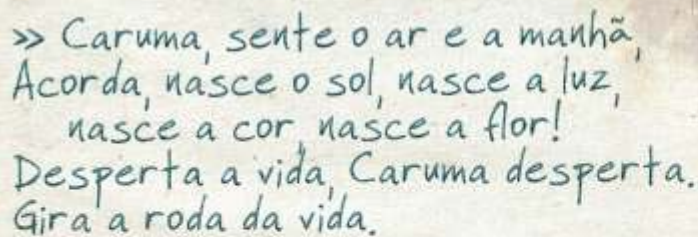 » Caruma, sente o ar e a manhã,
Acorda, nasce o sol, nasce a luz,
nasce a cor, nasce a flor!
Desperta a vida, Caruma desperta.
Gira a roda da vida.